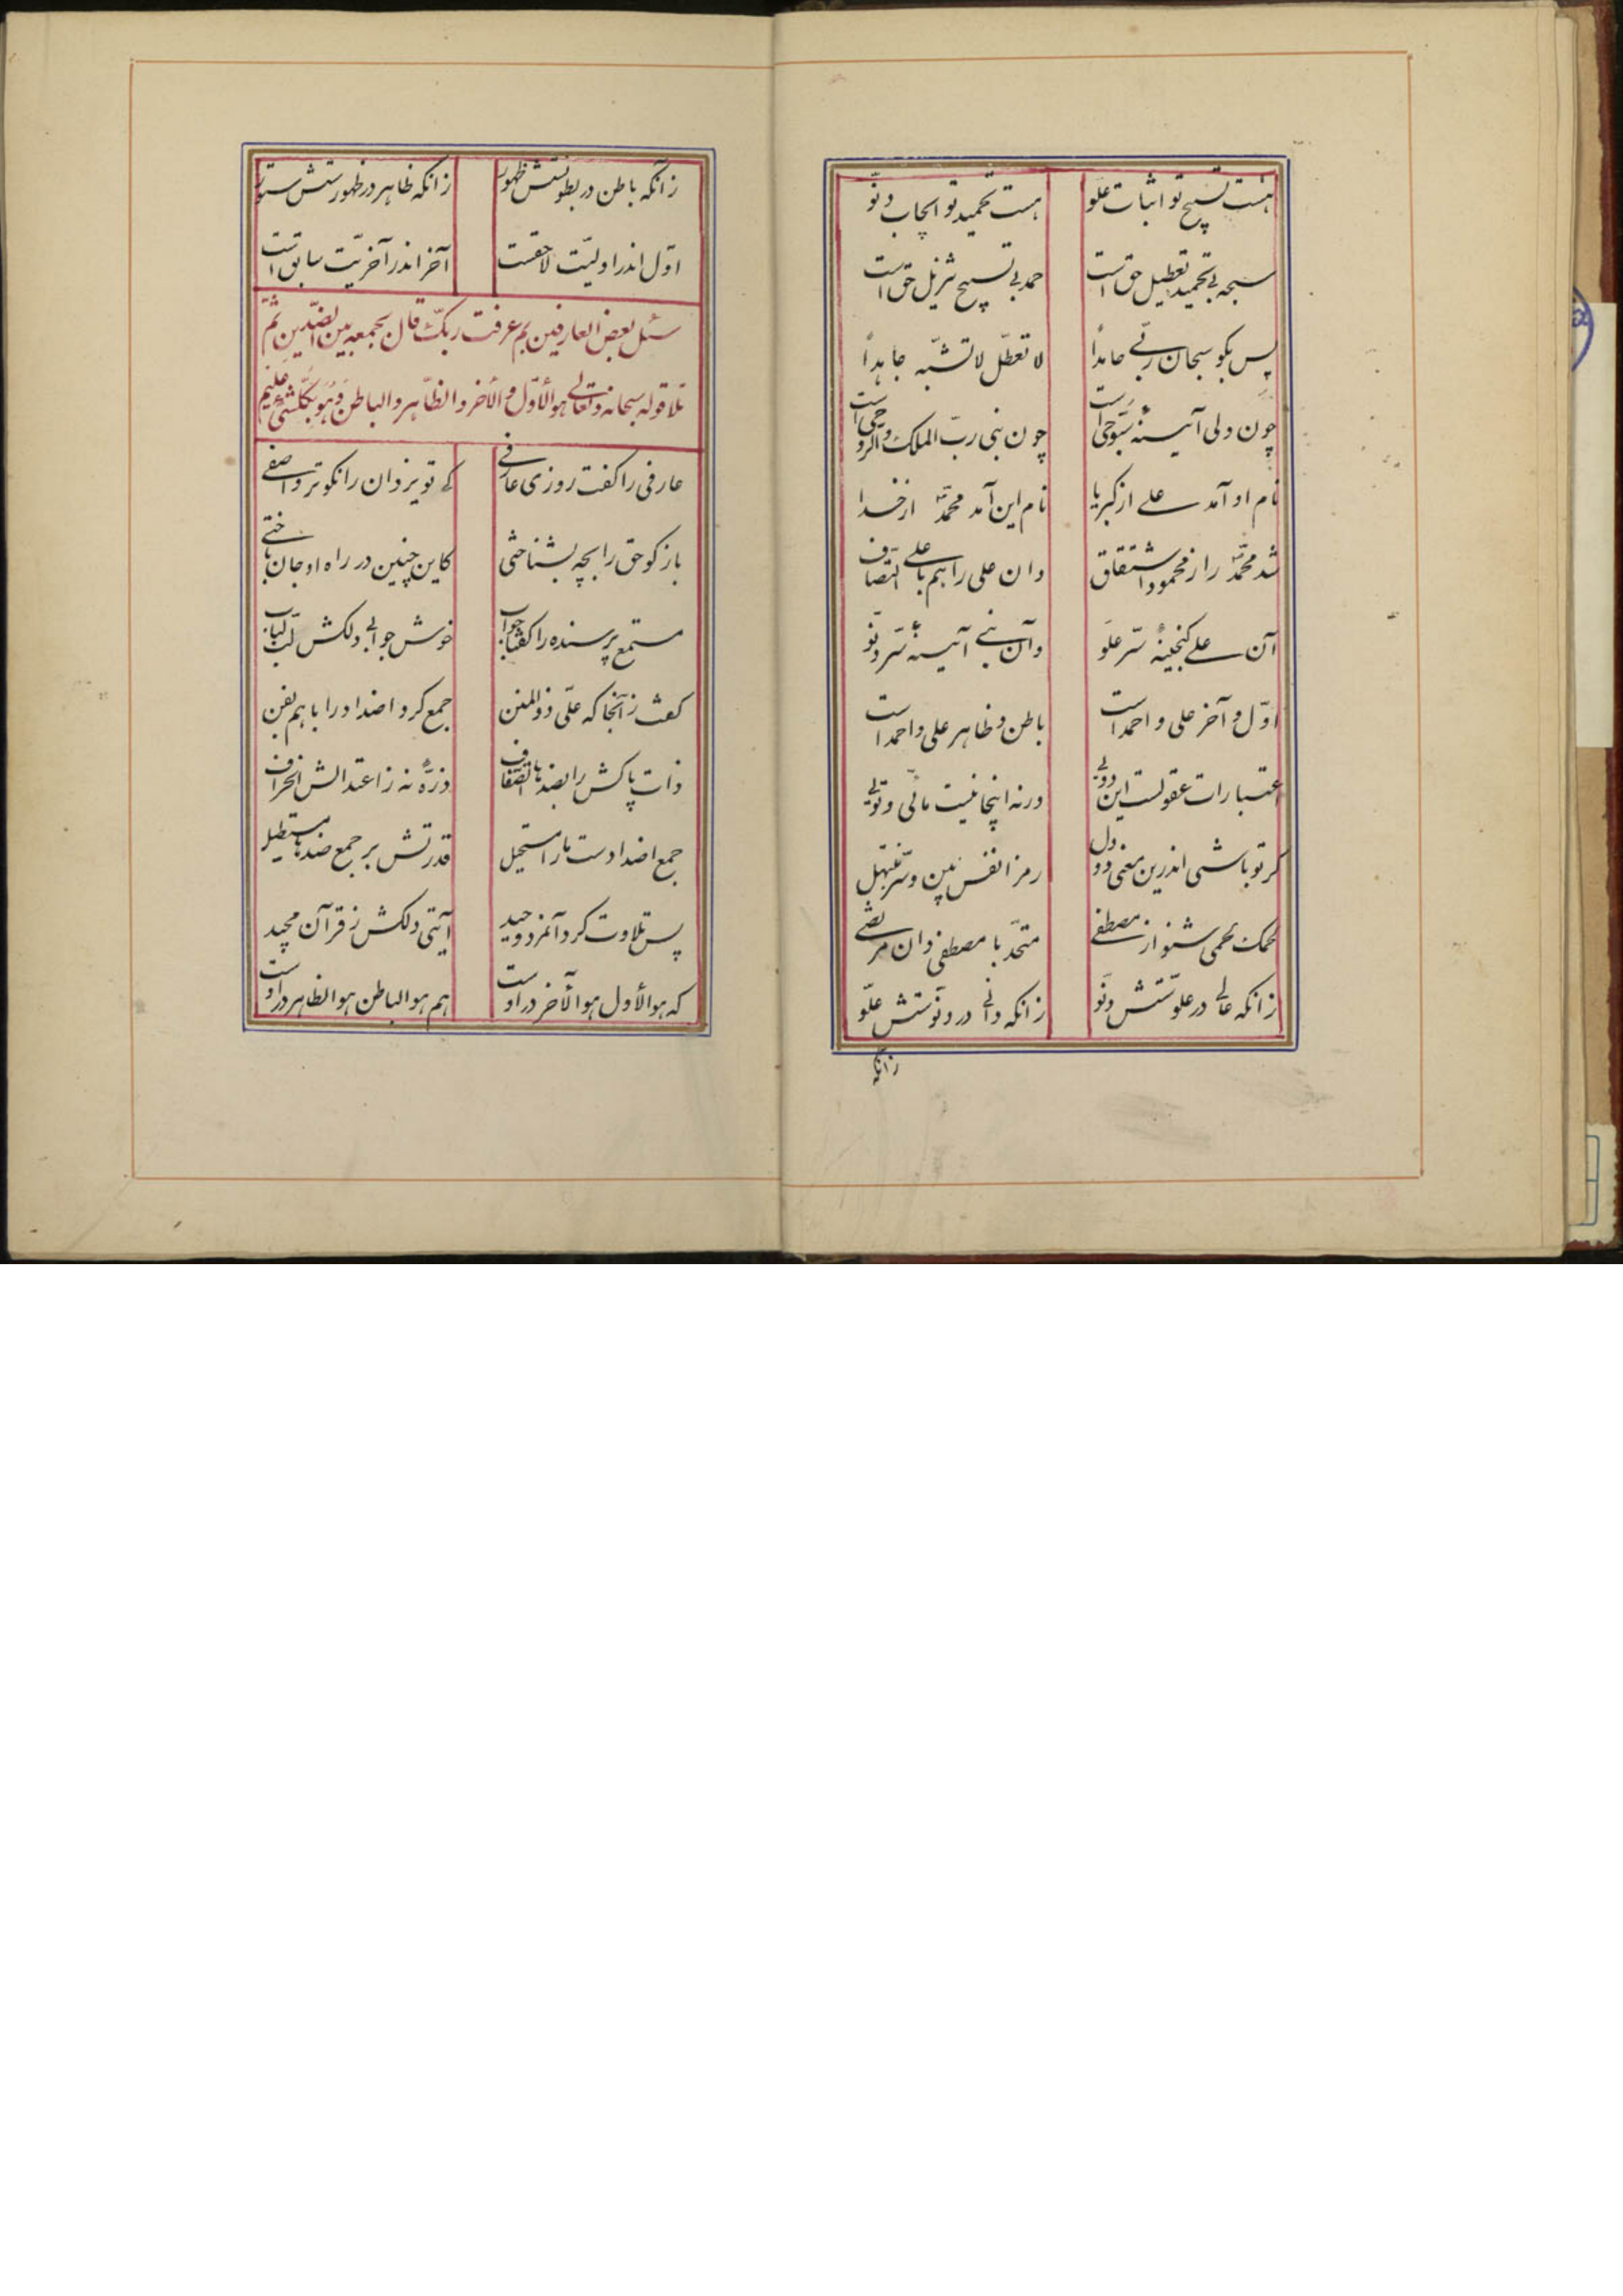 هست تسبیح تو اثبات علو هست تحمید تو ایجاب دنو
سبحه بی تحمید تعطیل حق است حمد بی تسبیح تنزیل حق است
پس بگو سبحان ربی حامداً لا تعطل لا تشبه جاهداً
چون ولی آئینه سبوحی است چون نبی رب الملک والروحی است
نام او آمد علی از کبریا نام این آمد محمد از خدا
شد محمد را ز محمود اشتقاق وان علی را هم باعلی اتصاف
آن علی گنجینه سر علو وآن نبی آئینه سر دنو
اول و آخر علی و احمد است باطن و ظاهر علی و احمد است
اعتبارات عقولست این دوئی ورنه اینجا نیست مائی و توئی
گر تو باشی اندرین معنی دو دل رمز انفس بین و سر نبتهل
لحمک لحمی شنو از مصطفی متحد با مصطفی دان مرتضی
زانکه عالی در علوستش دنو زانکه دانی در دنوستش علو
زانکه
زانکه باطن در بطونستش ظهور زانکه ظاهر در ظهورستش ستور
اول اندر اولیت لاحقست آخر اندر آخریت سابق است
سئل بعض العارفین بم عرفت ربک قال بجمعه بین الضدین ثم
تلا قوله سبحانه وتعالی هو الأول و الآخر و الظاهر و الباطن وهو بکلشئ علیم
عارفی را گفت روزی عارفی کے تو یزدان را نکوتر واصفی
باز گو حق را بچه بشناختی کاین چنین در راه او جان باختی
مستمع پرسنده را گفتا جواب خوش جوابی دلکش لب لباب
گفت زآنجا که علی ذوالمنن جمع کرد اضداد را با هم بفن
ذات پاکش را بضدها اتصاف ذره نه ز اعتدالش انحراف
جمع اضدادست ما را مستحیل قدرتش بر جمع ضدها مستطیل
پس تلاوت کرد آنمرد وحید آیتی دلکش ز قرآن مجید
که هو الأول هو الآخر در اوست هم هو الباطن هو الظاهر در اوست